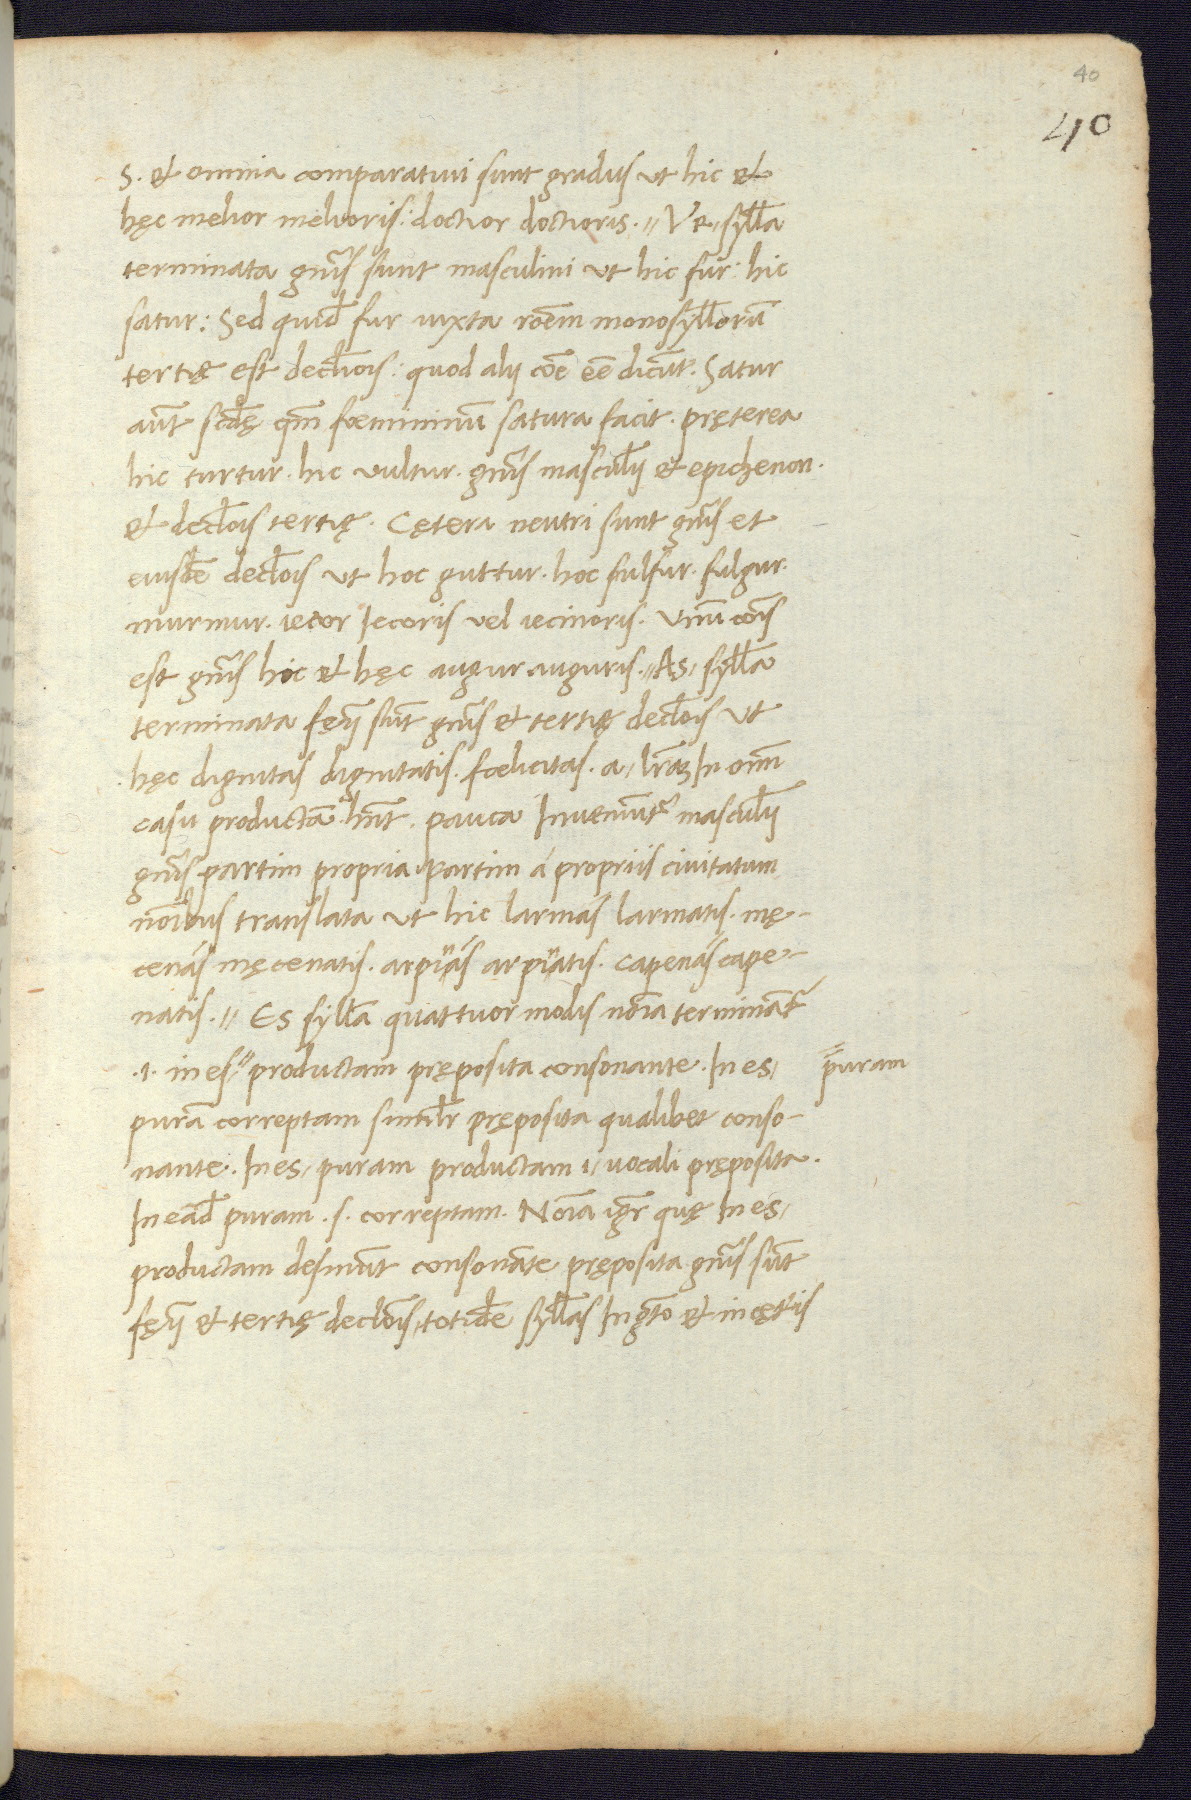 40
40
s. et omnia comparatiui sunt gradus ut hic et
hęc melior melioris: doctior doctioris. // Vr / syllã
terminata gñis sunt masculini ut hic fur: hic
satur: Sed quidẽ fur iuxta rõem monosyllorũ
tertię est decliõis: quod alij cõe eẽ dicũt. Satur
aũt scdę qm̃ foemininũ satura facit. pręterea
hic turtur. hic uultur. gñis masculĩ et epichenon.
et declõis tertię. Cętera neutri sunt gñis et
eiusdẽ declõis ut hoc guttur. hoc sulfur. fulgur.
murmur. iecor Iecoris vel iecinoris. Vnũ cõis
est gñis hic et hęc augur auguris. // As / sylla
terminata fęĩ sũt gñis et tertię declõis ut
hęc dignitas dignitatis. foelicitas. a / lrãs In om̃i
casu productã hñt. pauca Inueniũtr masculĩ
gñis partim propria partim á propriis ciuitatum
nõibus translata ut hic larinás larinatis. mę-
cenás męcenatis. arpïás arpïatis. Capenás cape-
natis. // Es sylla quattuor modis nõia terminãtr
.1. in es / productam pręposita consonante. In es /
purã correptam simĩlr pręposita qualibet conso-
nante. In es / puram productam i / uocali pręposita.
In eãdẽ puram .s. correptam. Nõia igr̃ quę In es /
productam desinũt consonãte pręposita gñis sũt
fęĩ et tertię declõis, totidẽ syllãs In gtõ et in cętĩs
puram